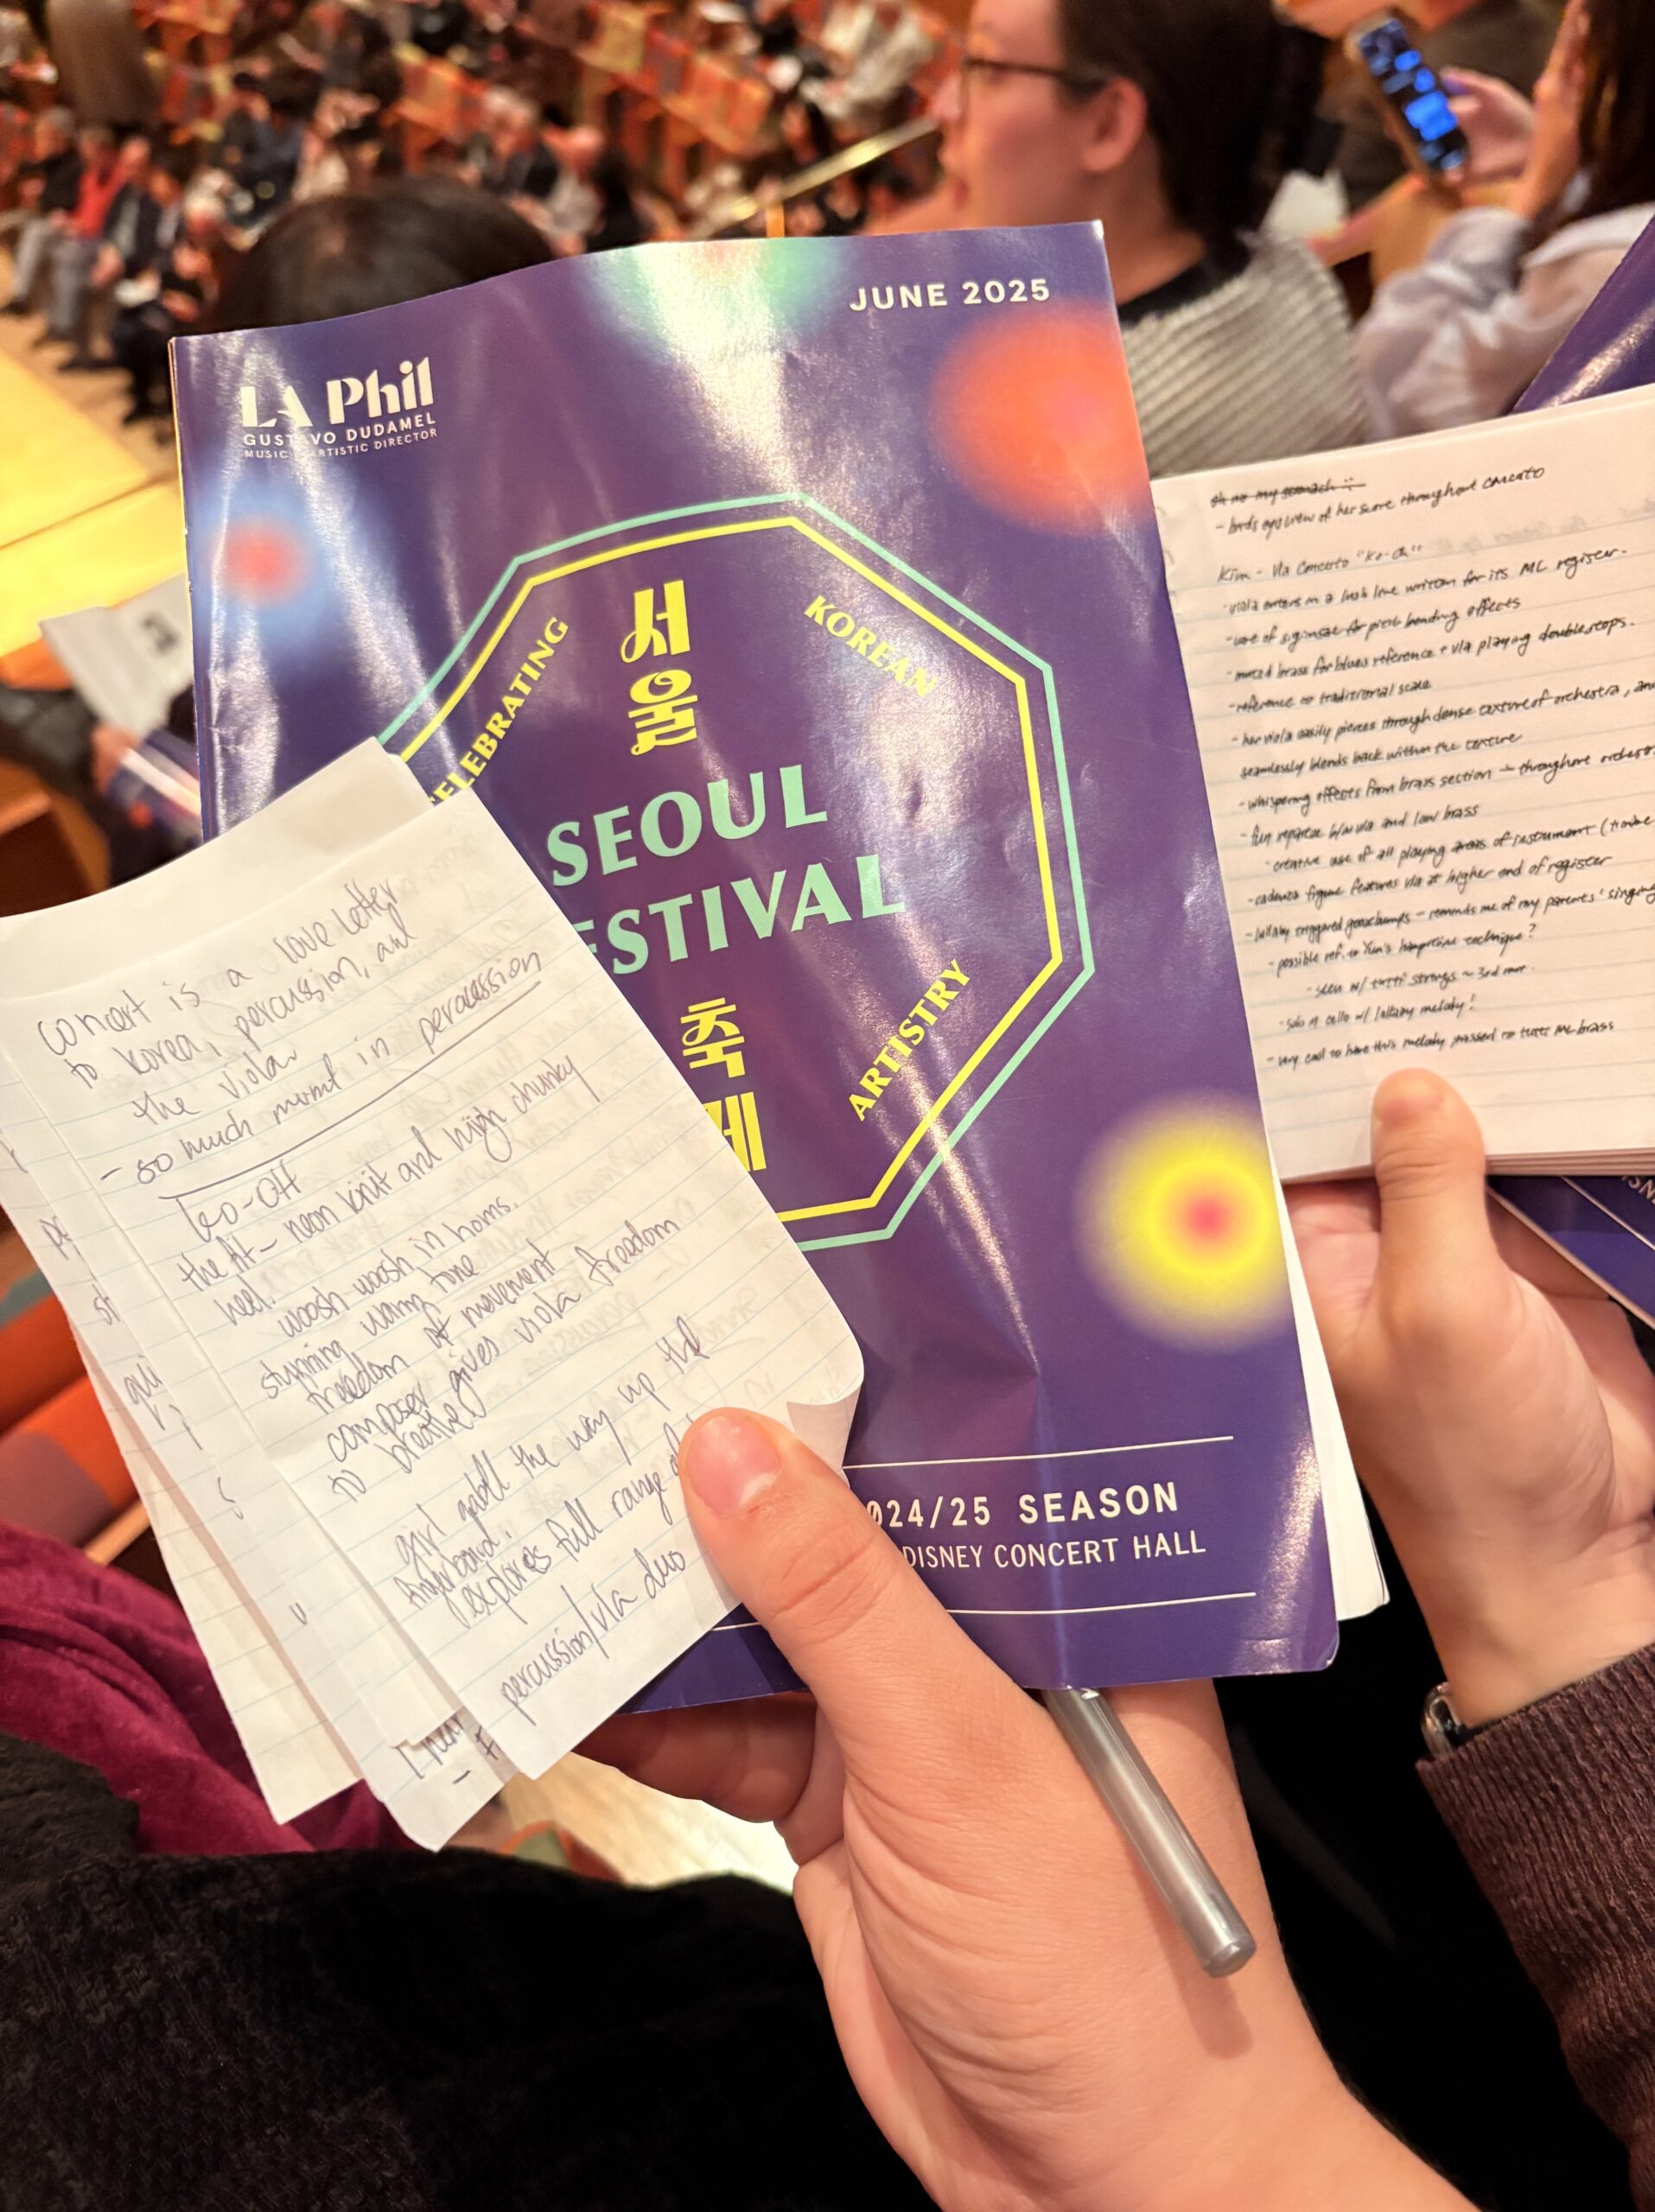 JUNE 2025
LA Phil
GUSTAVO DUDAMEL
MUSIC ARTISTIC DIRECTOR
서울
CELEBRATING
KOREAN
SEOUL
FESTIVAL
축제
ARTISTRY
2024/25 SEASON
DISNEY CONCERT HALL
concert is a love letter
to korea, percussion, and
the viola
- so much mvmt in percussion
Ko-Oh
the fit - neon knit and high chunky
heel.
woosh woosh in horns.
stunning warm tone
freedom of movement
composer gives viola freedom
to breathe
girl all the way up the
fingerboard.
explores full range of
percussion/vla duo
oh no my stomach :(
- birds eye view of her score throughout concerto
Kim - Vla Concerto "Ko-Oh"
- viola enters in a lush line written for its ML register.
- use of for pitch bending effects
- muted brass for blues reference + vla playing doublestops.
- reference to traditional scale
- her viola easily pierces through dense texture of orchestra, and
seamlessly blends back within the texture
- whispering effects from brass section - throughout
- fun repartee b/w vla and low brass
- creative use of all playing areas of instrument
- cadenza figure features vla at higher end of register
- lullaby triggered goosebumps - reminds me of my parents' singing
- possible ref. to Yun's technique?
- seen w/ tutti strings ~ 3rd mvt.
- solo cello w/ lullaby melody!
- very cool to have this melody passed to tutti brass